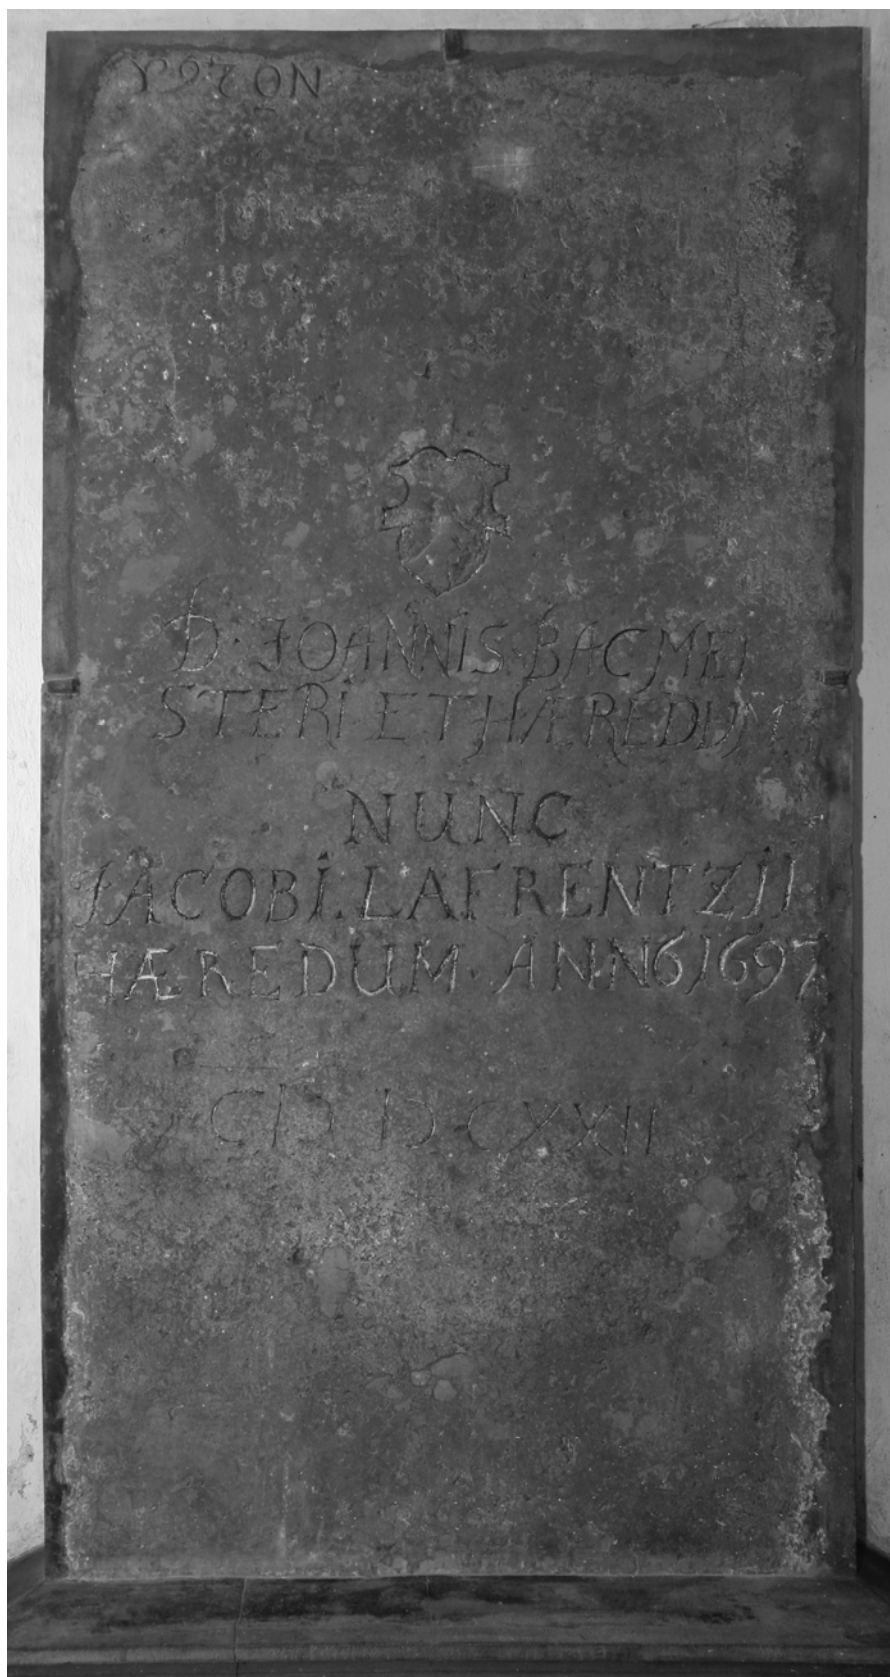 D. JOANNIS. BACMEI
STERI ET HÆREDUM
NUNC
JACOBI. LAFRENTZII
HÆREDUM. ANNO 1697
CIↃ IↃ CXXII